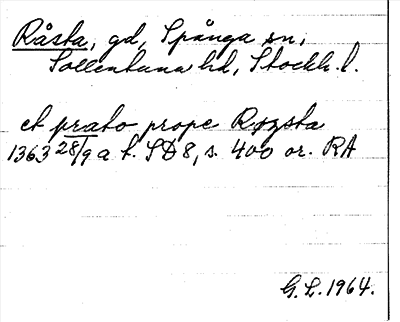 Råsta, gd, Spånga sn,
Sollentuna hd, Stockh. l.
et prato prope Ryzsta
1363 28/9 a f. SD 8, s. 400 or. RA
G. L. 1964.